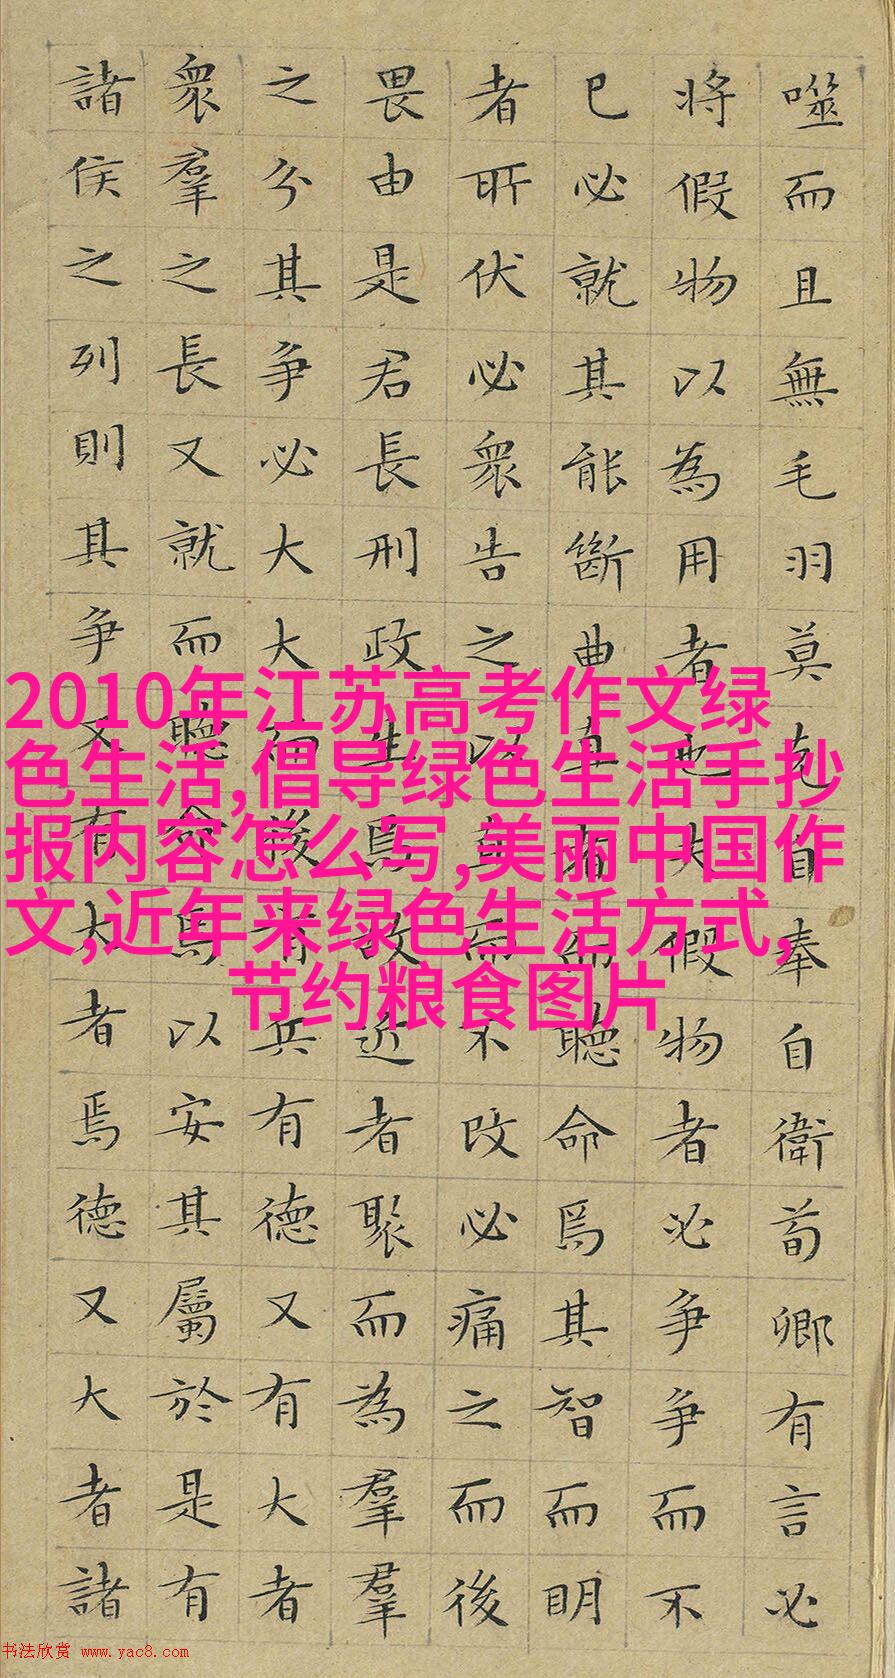 噬而且無毛羽莫克自奉自衛荀卿有言必
將假物以為用者也夫假物者必爭爭而不
已必就其能斷曲直者而聽命焉其智而明
者所伏必衆告之以直而不改必痛之而後
畏由是君長刑政生焉故近者聚而為羣羣
之分其爭必大大而後有兵有德又有大者
衆羣之長又就而聽命焉以安其屬於是有
諸侯之列則其爭又有大者焉德又大者諸
2010年江苏高考作文绿
色生活,倡导绿色生活手抄
报内容怎么写,美丽中国作
文,近年来绿色生活方式,
节约粮食图片
书法欣赏 www.yac8.com